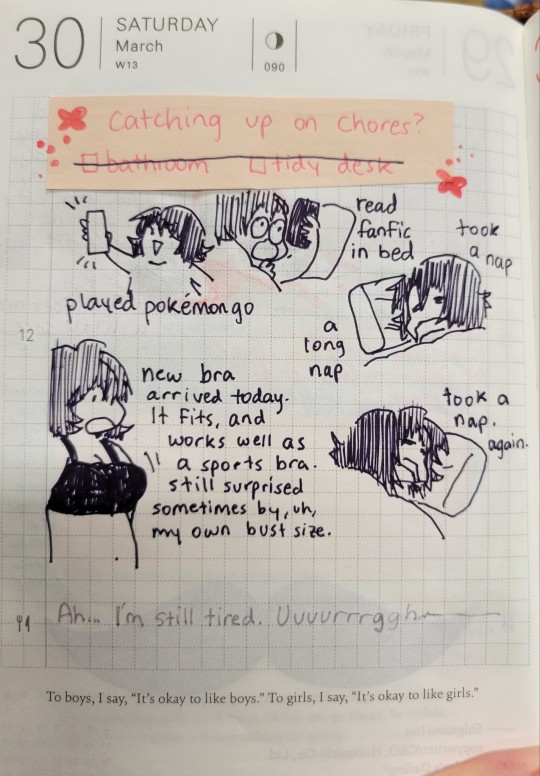 30
SATURDAY
March
W13
090
Catching up on chores?
bathroom tidy desk
played pokémon go
read
fanfic
in bed
took
a nap
a
long
nap
12
new bra
arrived today.
It fits, and
works well as
a sports bra.
still surprised
sometimes by, uh,
my own bust size.
took a
nap.
again.
Ah... I'm still tired. Uuuurrrggh
To boys, I say, “It's okay to like boys.” To girls, I say, “It's okay to like girls.”